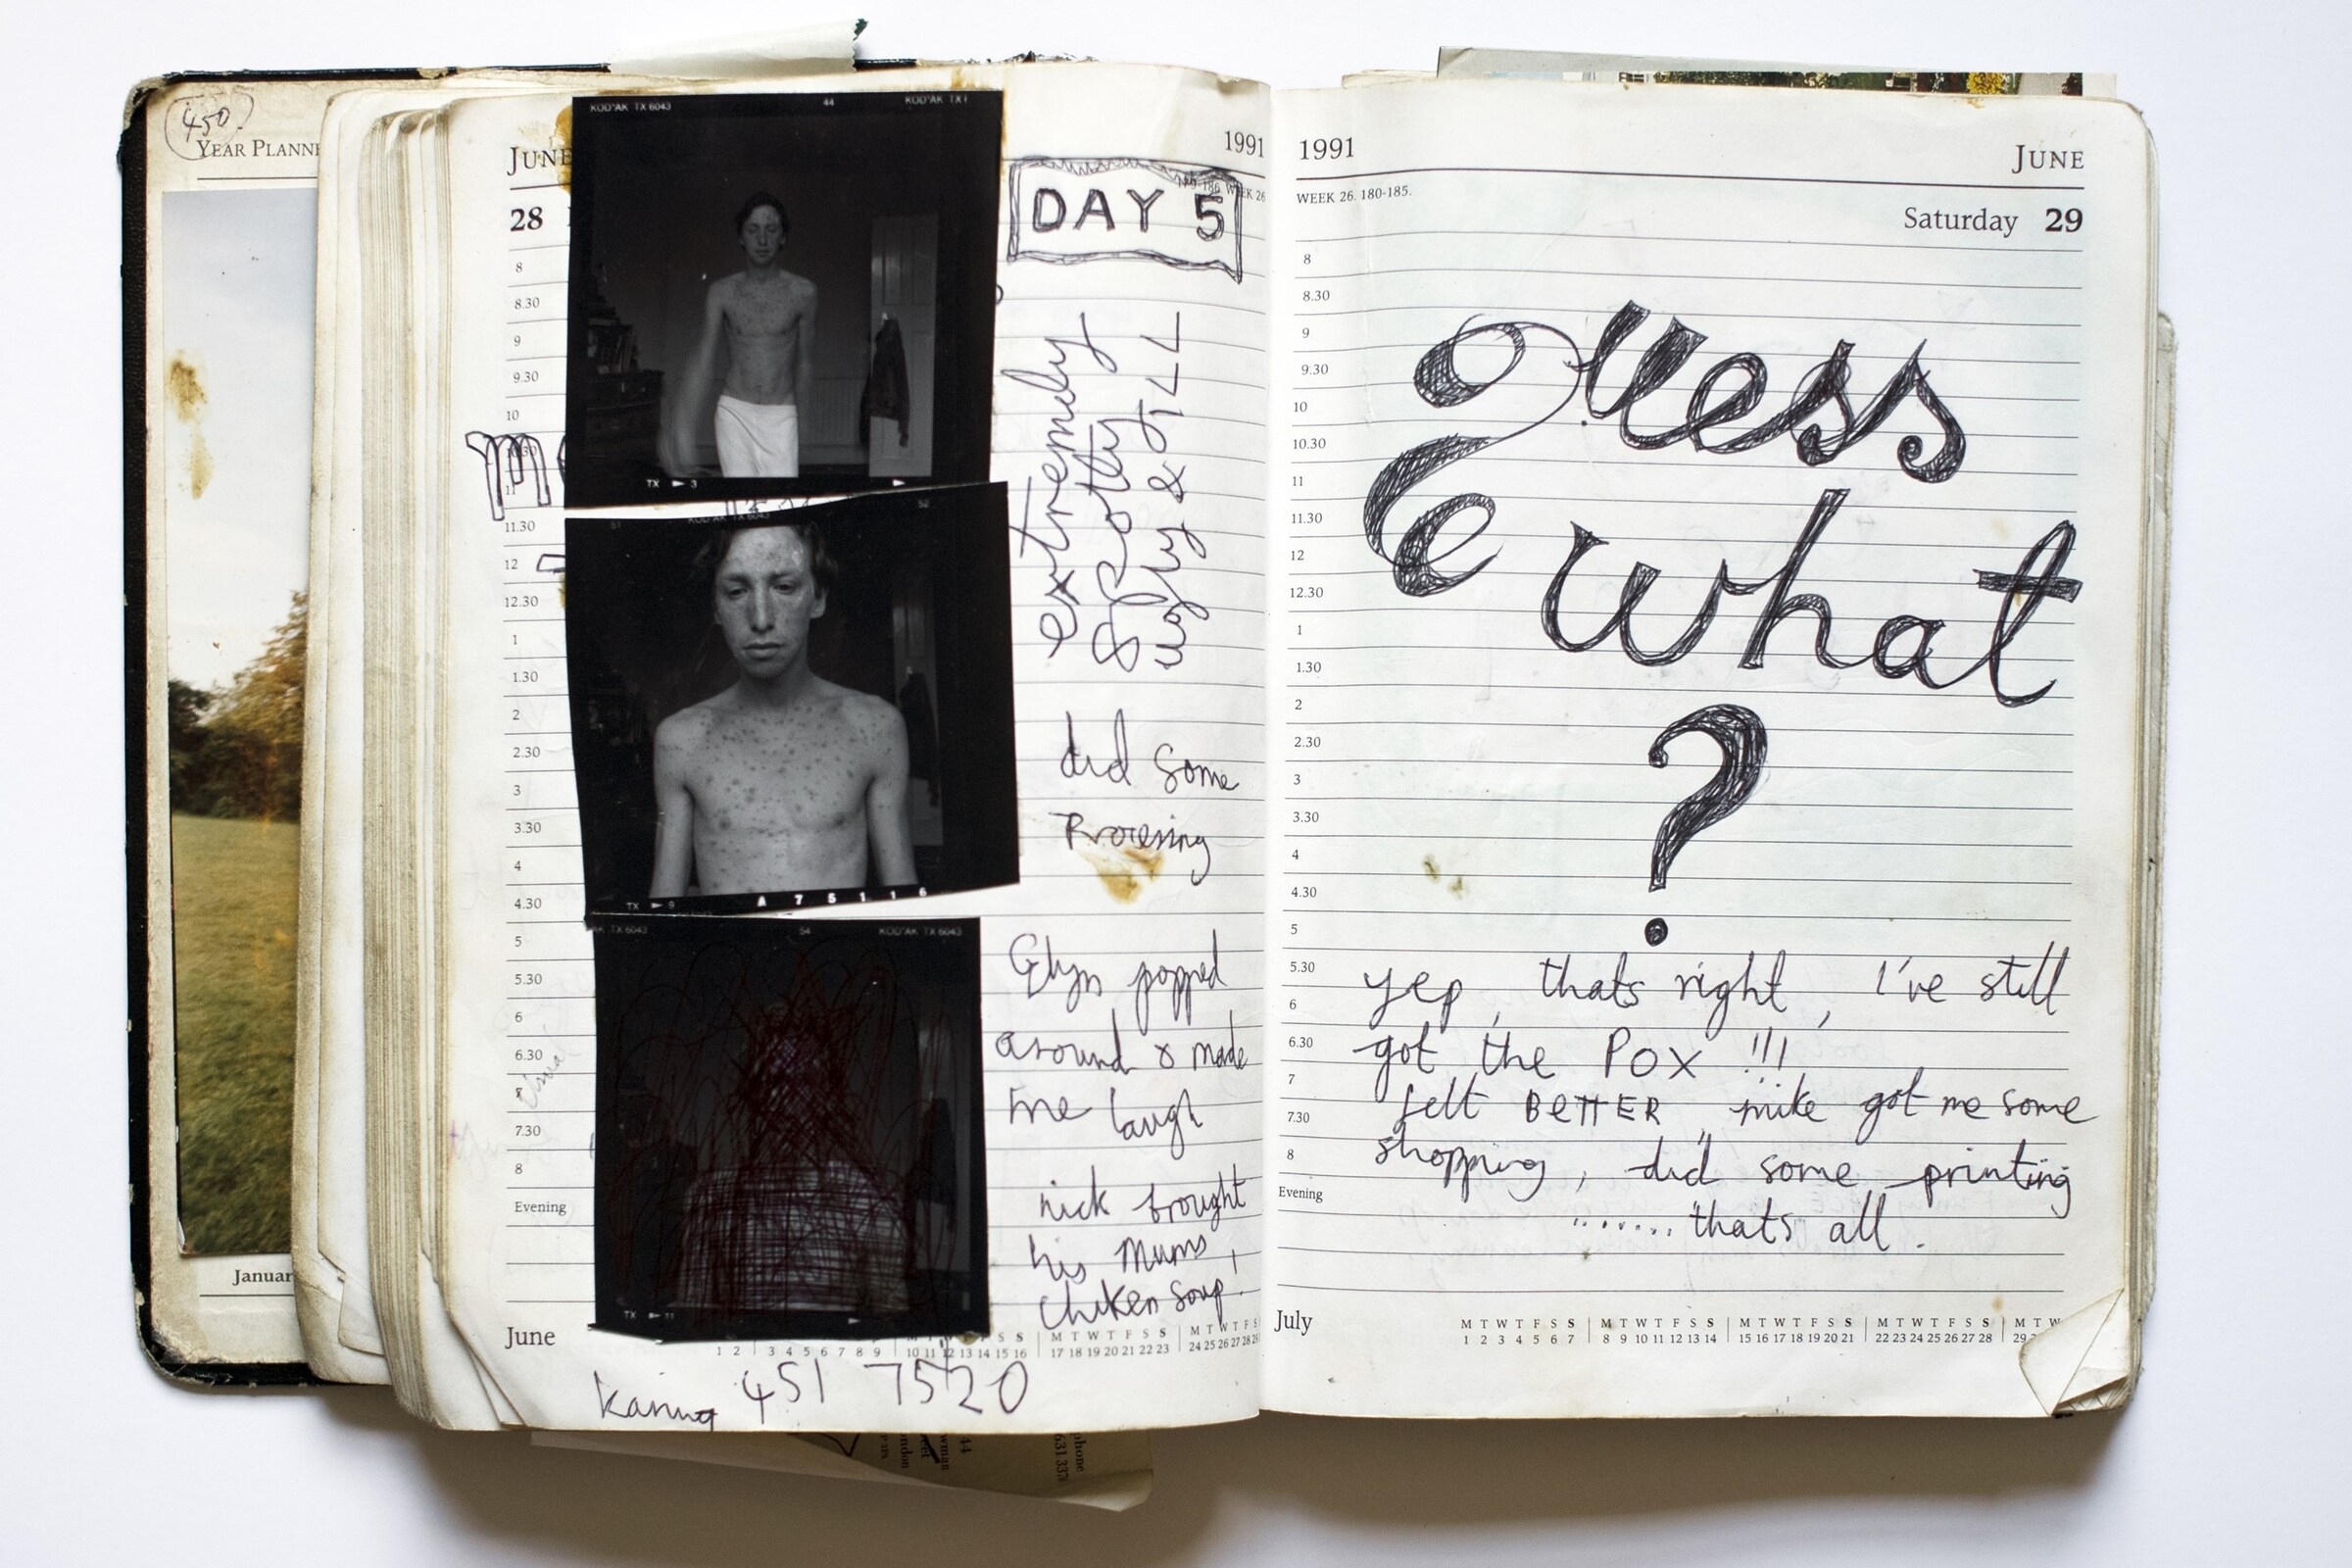 450
YEAR PLANNE
Januar
JUNE
1991
WEEK 26
28
8
8.30
9
9.30
10
10.30
11
11.30
12
12.30
1
1.30
2
2.30
3
3.30
4
4.30
5
5.30
6
6.30
7
7.30
8
Evening
KODAK TX 6043
44
KODAK TX
TX 3
51
KODAK TX 6043
52
TX 9
A 7 5 1 1 6
AK TX 6043
54
KODAK TX 6043
TX 11
DAY 5
extremely
Spotty
ugly & ILL
did some
Processing
Glyn popped
around & made
me laugh
nick brought
his Mums,
chiken soup.
June
M T W T F S S
1 2 3 4 5 6 7 8 9 10 11 12 13 14 15 16 17 18 19 20 21 22 23 24 25 26 27 28
451 7520
1991
JUNE
WEEK 26. 180-185.
Saturday 29
8
8.30
9
9.30
10
10.30
11
11.30
12
12.30
1
1.30
2
2.30
3
3.30
4
4.30
5
5.30
6
6.30
7
7.30
8
Evening
guess
what
?
yep, thats right, I've still
got the POX !!!
felt BETTER, mike got me some
shopping, did some printing
....... thats all.
July
M T W T F S S M T W T F S S M T W T F S S M T W T F S S M T W
1 2 3 4 5 6 7 8 9 10 11 12 13 14 15 16 17 18 19 20 21 22 23 24 25 26 27 28 29